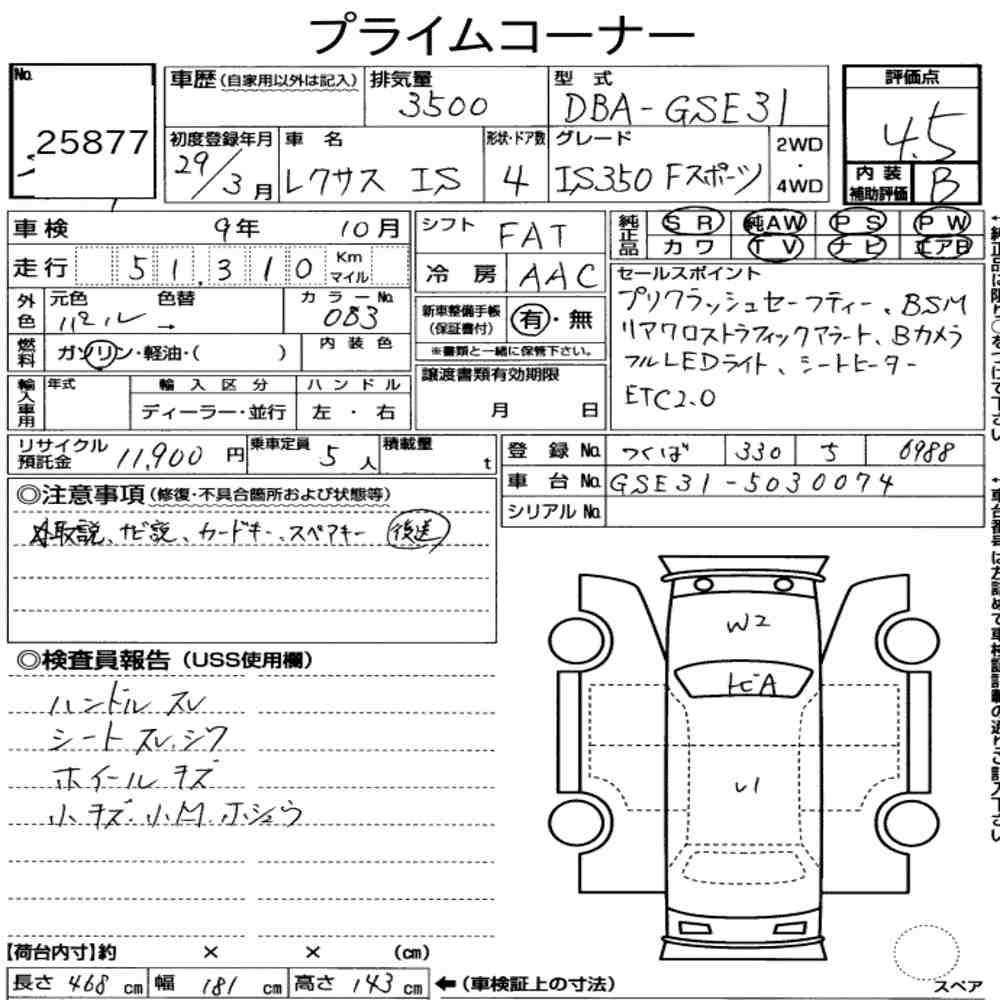 プライムコーナー
No. 25877
車歴(自家用以外は記入)
排気量 3500
型式 DBA-GSE31
評価点 4.5
初度登録年月 29/3月
車名 レクサス IS
形状・ドア数 4
グレード IS350 Fスポーツ
2WD・4WD
内装補助評価 B
車検 9年 10月
シフト FAT
純正品 SR 純AW PS PW
カワ TV ナビ エアB
走行 51,310 Km マイル
冷房 AAC
セールスポイント
プリクラッシュセーフティー、BSM
リアクロストラフィックアラート、Bカメラ
フルLEDライト、シートヒーター
ETC2.0
外色 元色 パール → 色替
カラーNo. 083
新車整備手帳(保証書付) 有・無
※書類と一緒に保管下さい。
燃料 ガソリン・軽油・( )
内装色
譲渡書類有効期限
月 日
輸入車用 年式
輸入区分 ディーラー・並行
ハンドル 左・右
リサイクル預託金 11,900円
乗車定員 5人
積載量 t
登録No. つくば 330 ち 6988
車台No. GSE31-5030074
シリアルNo.
◎注意事項(修復・不具合箇所および状態等)
取説、ナビ説、カードキー、スペアキー 後送
◎検査員報告(USS使用欄)
ハンドル スレ
シート スレ、シワ
ホイール キズ
小キズ、小凹 ホシュウ
W2
トビA
U1
【荷台内寸】約 × × (cm)
長さ 468 cm 幅 181 cm 高さ 143 cm ←(車検証上の寸法)
スペア
↑純正品は限り○をつけて下さい
↑車台番号は左詰めで車検証記載の通りご記入下さい